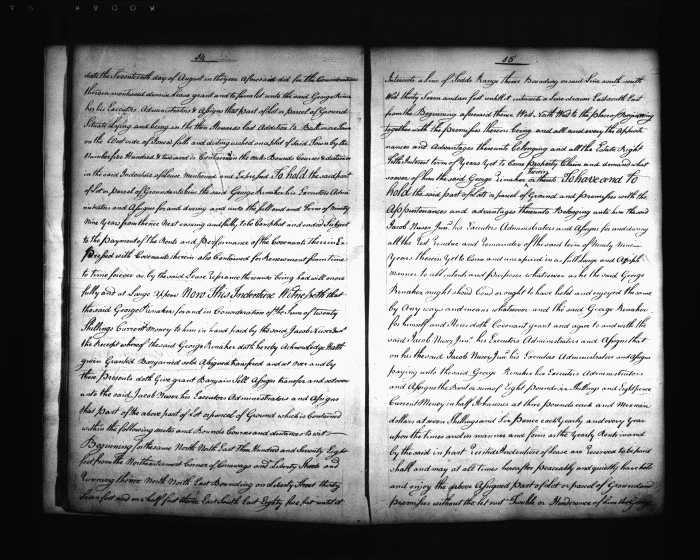 34
date the Seventeenth day of August in the year aforesaid did for the Consideration
therein mentioned demise Lease grant and to farm let unto the said George Rinaker
his Executors Administrators & Assigns that part of Lot or parcel of Ground
Situate Lying and being in the then Howards last Addition to Baltimore Town
on the West side of Jones's falls and distinguished on a plot of said Town by the
Number five Hundred & two and is Contained in the mets Bounds Courses & distances
in the said Indenture of Lease Mentioned and Expressed To hold the said part
of Lot or parcel of Ground unto him the said George Rinaker his Executors Admin
istrators and Assigns for and during and unto the full end and Term of Ninety
Nine Years from thence Next ensuing and fully to be Compleat and ended Subject
to the payment of the Rents and Performance of the Covenants therein Ex
pressed with Covenants therein also Contained for Renewment from time
to time forever as by the said Lease reference thereunto being had will more
fully and at Large Appear Now This Indenture Witnesseth that
the said George Rinaker for and in Consideration of the Sum of twenty
Shillings Current Money to him in hand paid by the said Jacob
the Receipt whereof the said George Rinaker doth hereby Acknowledge Hath
given Granted Bargained sold Assigned transferred and set over and by
these presents doth Give grant Bargain Sell Assign transfer and set over
unto the said Jacob his Executors Administrators and Assigns
that part of the above part of Lot or parcel of Ground which is Contained
within the following mets and Bounds Courses and distances to wit
Beginning for the same North North East Two Hundred and Seventy Eight
feet from the Northeasternmost Corner of Conewago and Liberty Streets and
Running thence North North East Bounding on Liberty Street thirty
Seven feet and one half foot thence East South East Eighty five feet until it
35
Intersects a Line of Todds Range thence Bounding on said Line south south
West thirty Seven and an feet untill it intersects a Line drawn East south East
from the Beginning aforesaid thence West North West to the place of Beginning
together with the premisses thereon being and all and every the Appurte
nances and Advantages thereunto belonging and all the Estate Right
Title Interest term of Years Yet to Come property Claim and demand what
soever of him the said George Rinaker therein or thereto To have and To
hold the said part of Lot or parcel of Ground and premisses with the
Appurtenances and advantages thereunto Belonging unto him the said
Jacob Junr his Executors Administrators and Assigns for and during
all the Rest Residue and Remainder of the said term of Ninety Nine
Years therein Yet to Come and unexpired in as full Large and Ample
manner to all intents and purposes whatsoever as he the said George
Rinaker might should Coud or ought to have held and enjoyed the same
by Any ways and means whatsoever and the said George Rinaker
for himself and Heirs doth Covenant grant and agree to and with the
said Jacob Junr his Executors Administrators and Assigns that
on his the said Jacob Junr his Executors Administrators and Assigns
paying unto the said George Rinaker his Executors Administrators
and Assigns the Rent or sum of Eight pounds six Shillings and Eight pence
Current Money in half Johannes at three pounds each and Mexican
dollars at seven Shillings and Six pence each Yearly and every Year
upon the times and in manner and form as the Yearly Rents in and
by the said in part Recited Indenture of Lease are Reserved to be paid
shall and may at all times hereafter peaceably and quietly have hold
and enjoy the above Assigned part of Lot or parcel of Ground and
premisses without the let suit Trouble or Hinderance of him the George